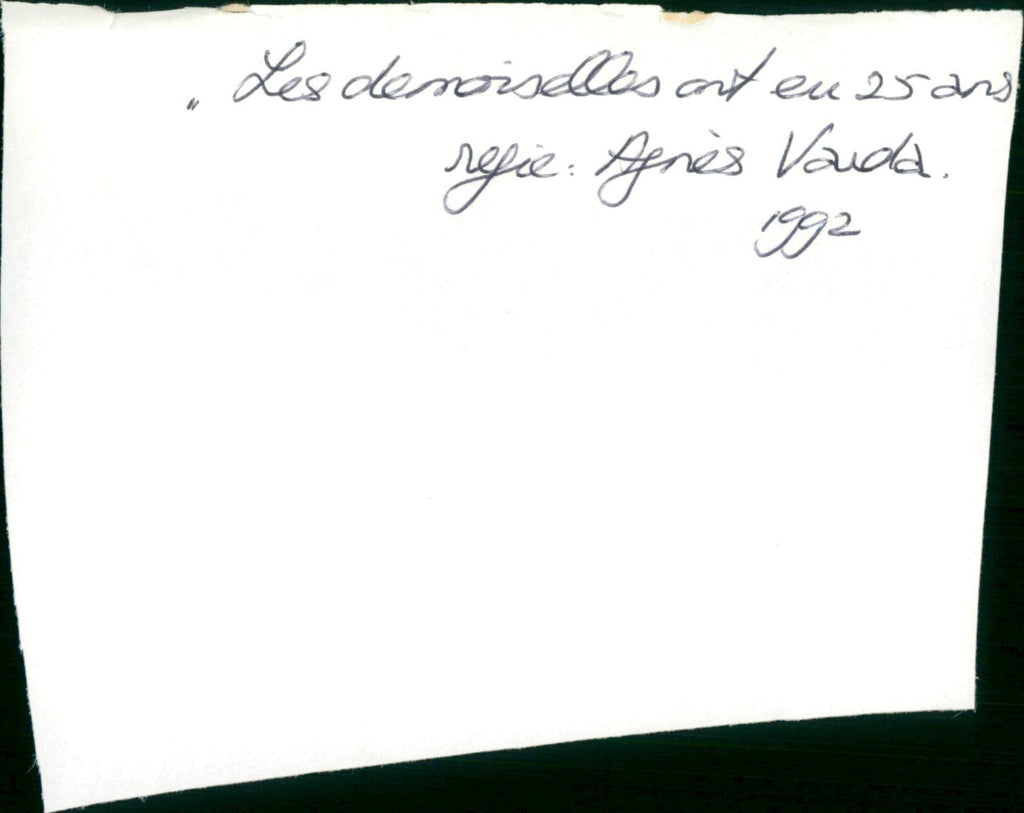 „ Les demoiselles ont eu 25 ans
regie: Agnès Varda.
1992